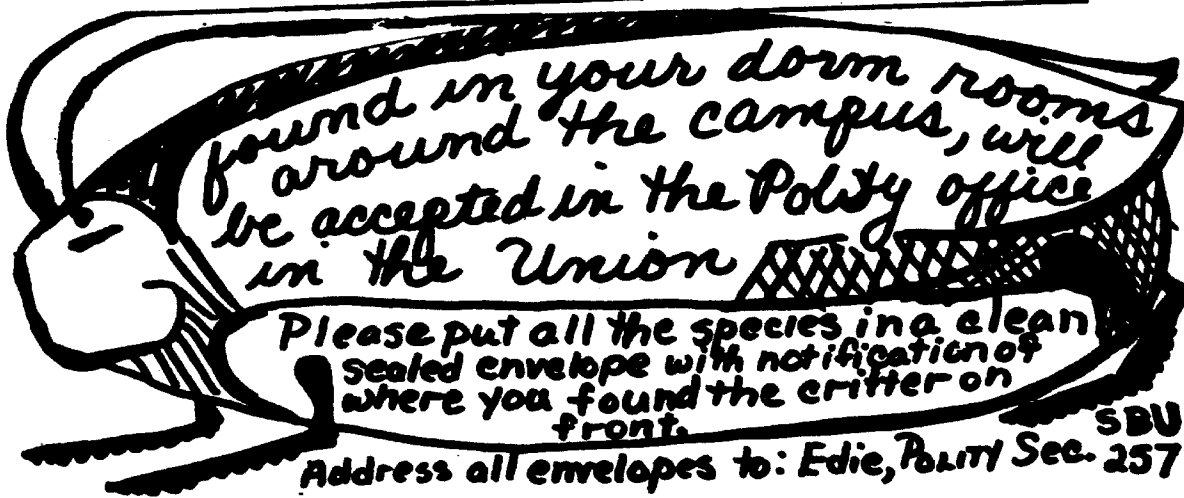 found in your dorm rooms
around the campus, will
be accepted in the Polity office
in the Union
Please put all the species in a clean
sealed envelope with notification of
where you found the critter on
front.
Address all envelopes to: Edie, POLITY Sec. SBU
257